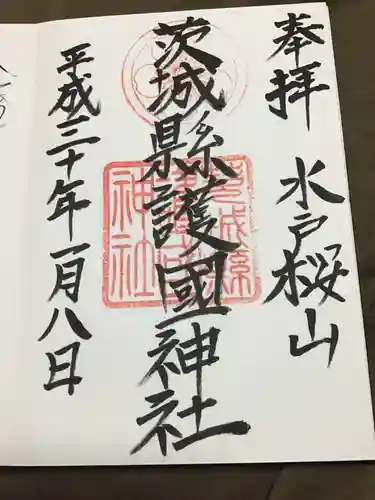 奉拝 水戸桜山
茨城縣護國神社
平成三十年一月八日
茨城縣護國神社